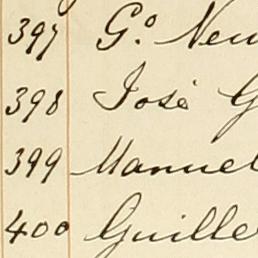 397 G.º New
398 José G
399 Manuel
400 Guille